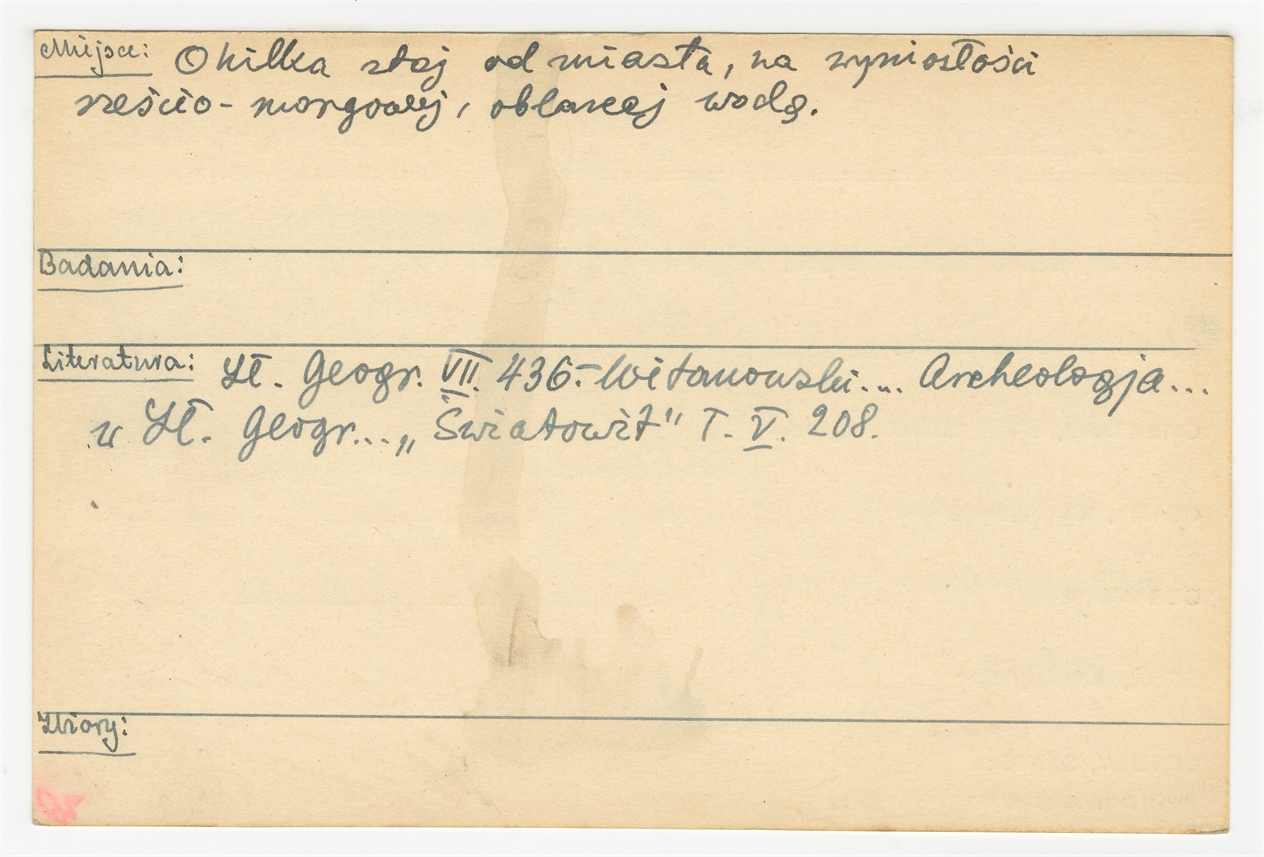 Miejsce: O kilka staj od miasta, na wyniosłości
sześcio-morgowej, oblanej wodą.
Badania:
Literatura: Sł. Geogr. VII. 436.- Witanowski.... Archeologja...
w Sł. Geogr... „Światowit" T. V. 208.
Zbiory: